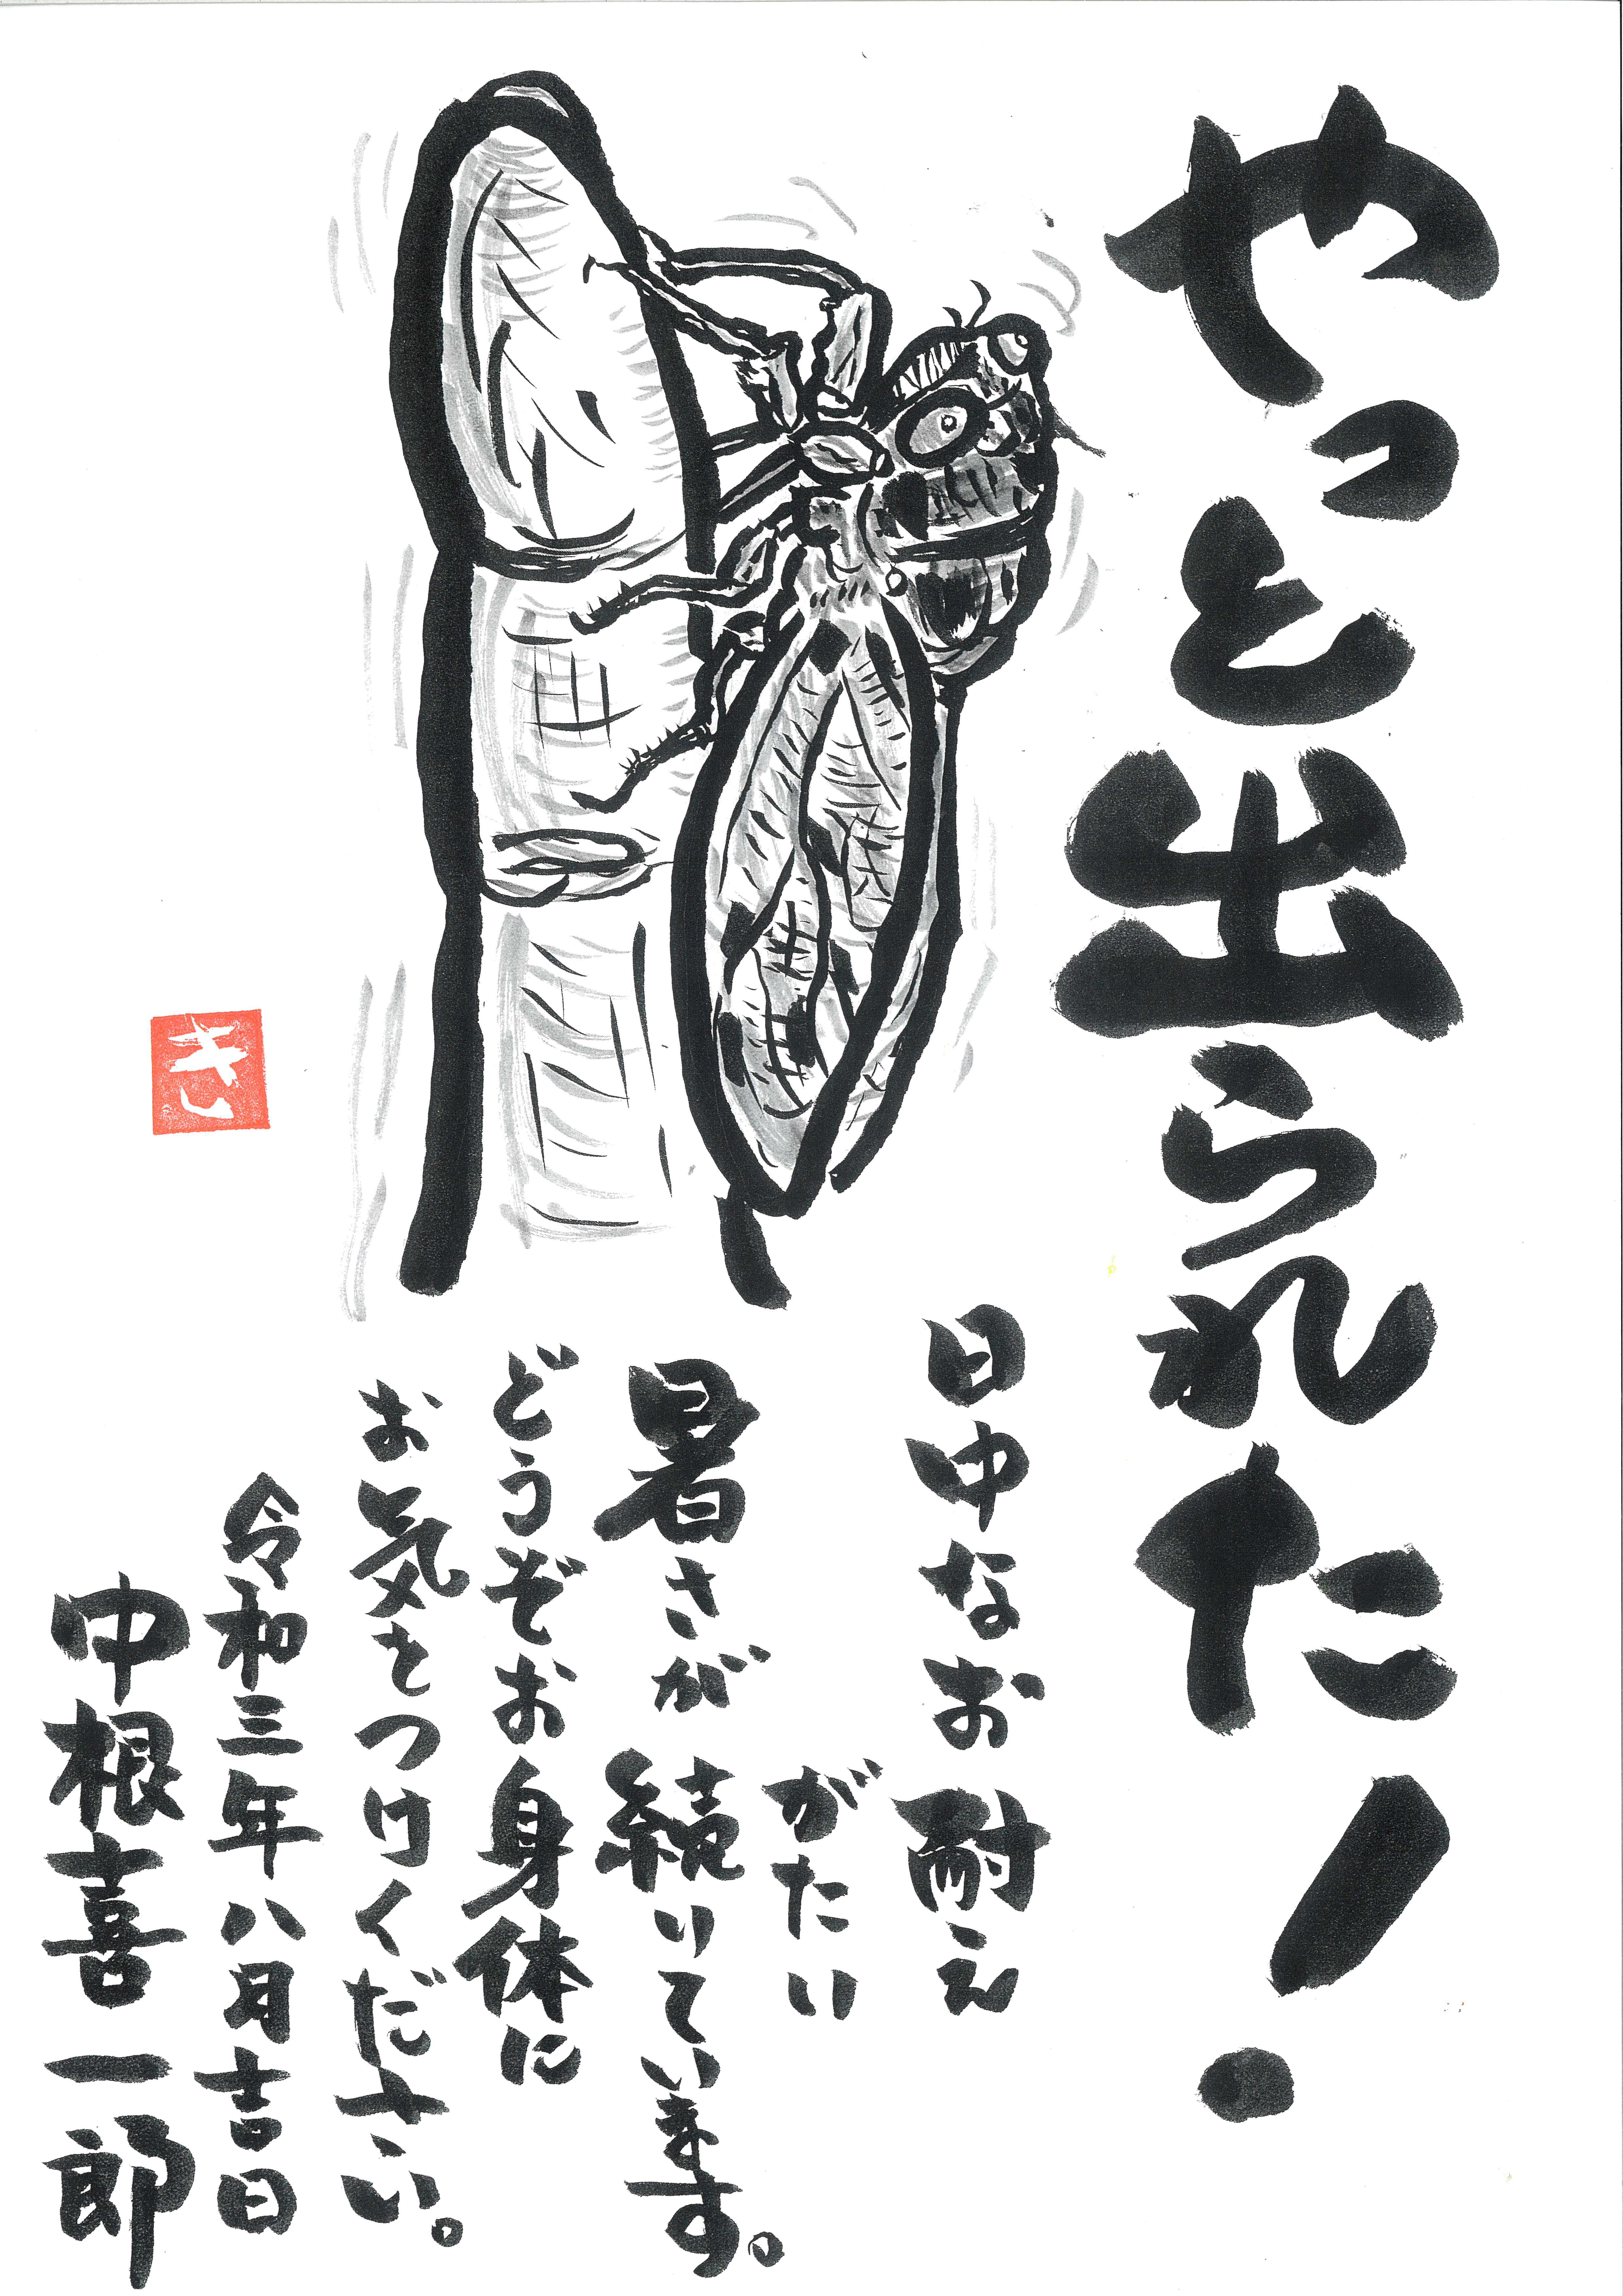 やっと出られた!
日中なお耐え
がたい
暑さが続いています。
どうぞお身体に
お気をつけください。
令和三年八月吉日
中根喜一郎
きし